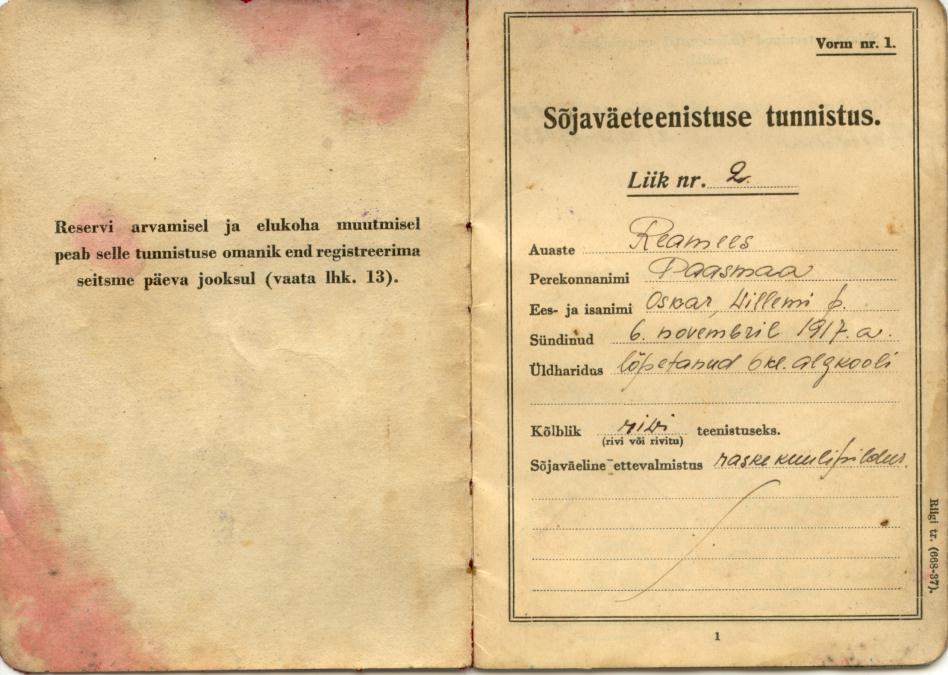 Reservi arvamisel ja elukoha muutmisel
peab selle tunnistuse omanik end registreerima
seitsme päeva jooksul (vaata lhk. 13).
Vorm nr. 1.
Sõjaväeteenistuse tunnistus.
Liik nr. 2.
Auaste Reamees
Perekonnanimi Paasmaa
Ees- ja isanimi Oskar, Willemi p.
Sündinud 6. novembril 1917. a.
Üldharidus lõpetanud 6 kl. algkooli
Kõlblik rivi teenistuseks.
(rivi või rivitu)
Sõjaväeline ettevalmistus raskekuulipildur.
Riigi tr. (668-37).
1